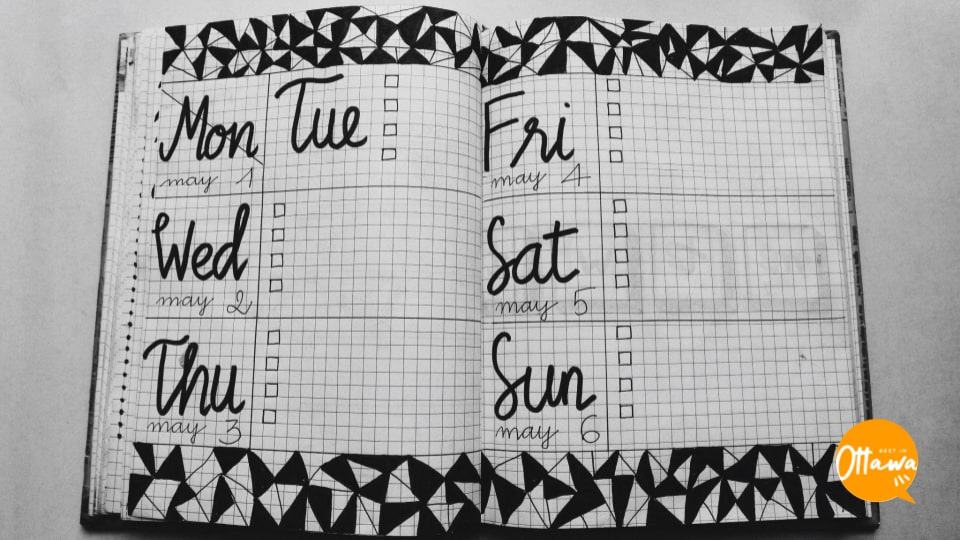 Mon Tue
may 1
Wed
may 2
Thu
may 3
Fri
may 4
Sat
may 5
Sun
may 6
BEST IN
Ottawa